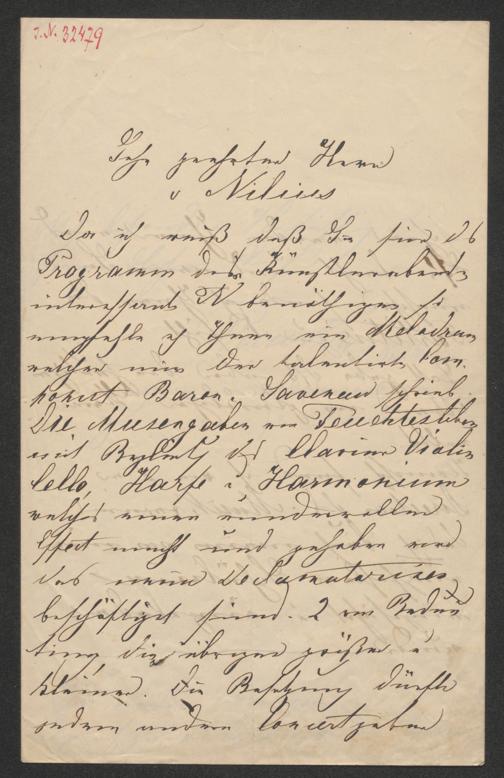 J.N. 32479
Sehr geehrter Herr
v Nilius
Da ich weiß daß Sie für das
Programm des Künstlerabends
interessante N benöthigen so
empfehle ich Ihnen ein Melodram
welches mir der talentirte Com-
ponist Baron Savenau schrieb.
Die Musengaben von Feuchtersleben
mit Begleitg des Clavier Violin
Cello, Harfe u Harmonium
welches einen wundervollen
Effect macht und
das neun Declamatorinen
beschäftigt sind. 2 von Bedeu
tung die übrigen größer u
kleiner. Die Besetzung dürfte
jedem andern Concertgeber